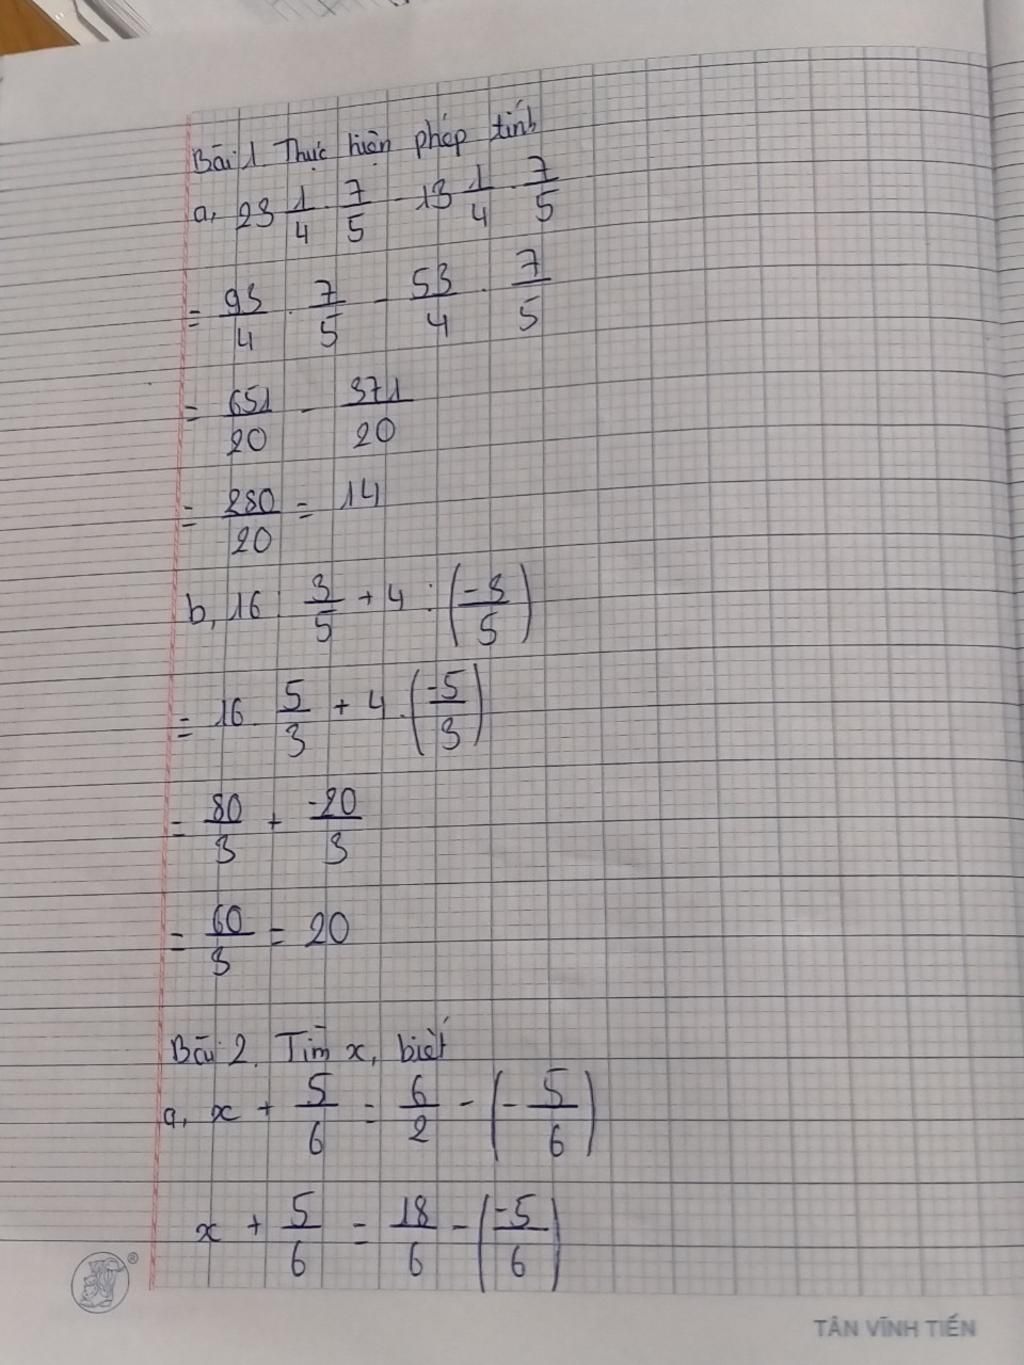 Bài 1 Thực hiện phép tính
a, 23 1/4 . 7/5 - 13 1/4 . 7/5
= 93/4 . 7/5 - 53/4 . 7/5
= 651/20 - 371/20
= 280/20 = 14
b, 16 : 3/5 + 4 : (-3/5)
= 16 . 5/3 + 4 . (-5/3)
= 80/3 + -20/3
= 60/3 = 20
Bài 2. Tìm x, biết
a, x + 5/6 = 6/2 - (-5/6)
x + 5/6 = 18/6 - (-5/6)
®
TÂN VĨNH TIẾN